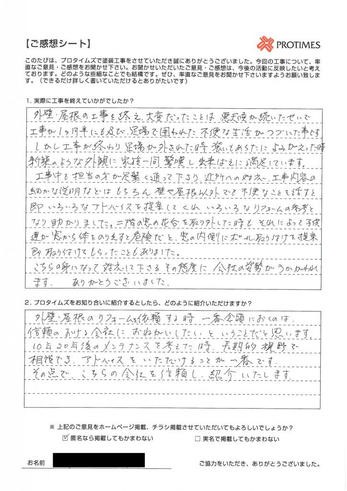 【ご感想シート】
PROTIMES
このたびは、プロタイムズで塗装工事をさせていただき誠にありがとうございました。今回の工事について、率
直なご意見・ご感想をお聞かせ下さい。お聞かせいただいたご意見・ご感想は、今後の活動に反映したいと考え
ております。どのような些細なことでも結構です。ぜひ、率直なご意見をお聞かせいただきますようお願い致しま
す。（できるだけ詳しく書いていただけるとありがたいです）
1. 実際に工事を終えていかがでしたか？
外壁・屋根の工事を終え、大変だったことは、悪天候が続いたせいで
工事が1ヶ月半にも及び足場で囲われた不便な生活がつづいた事です
しかし工事が終わり足場が外された時、待ってあいたによみがえった時
新築のような外観に家族一同驚嘆し、出来ばえに満足しています。
工事中も担当の方が足繁く通って下さり、近所への対応、工事内容の
細かな説明などはもちろん、壁や屋根以外でも不便なことを話すと
即いろいろなアドバイスを提案してくれ、いろいろなリフォームの参考と
なり助かりました。二階の窓の花台を取り外した時も
窓から体をのり出すと危険だと、窓の内側にポール取り付けを提案
取り付けてもらったこともありました。
こちらの身になって考えて下さるその態度に会社の姿勢がうかがわれ
ます。ありがとうございました。
2. プロタイムズをお知り合いに紹介するとしたら、どのように紹介いただけますか？
外壁・屋根のリフォームを依頼する時一番念頭におくのは、
信頼のおける会社におねがいしたいということだと思います。
10年20年後のメンテナンスを考えた時、長期的視野で
相談でき、アドバイスをいただけることが一番です。
その点で、こちらの会社を信頼し、紹介いたします。
※ 上記のご意見をホームページ掲載、チラシ掲載させていただいてもよろしいでしょうか？
☑ 匿名なら掲載してもかまわない　□ 実名で掲載してもかまわない
お名前
ご協力をいただき、ありがとうございました。